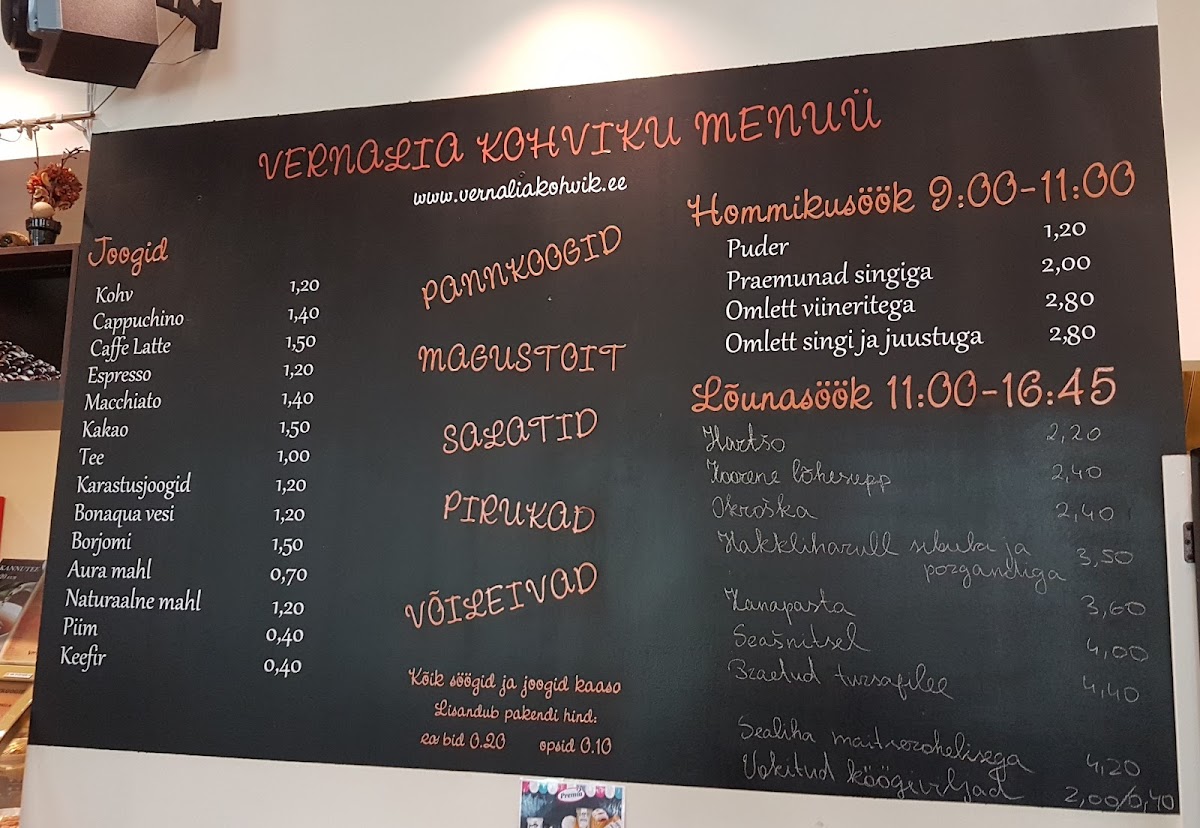 VERNALIA KOHVIKU MENUÜ
www.vernaliakohvik.ee
Joogid
Kohv 1,20
Cappuchino 1,40
Caffe Latte 1,50
Espresso 1,20
Macchiato 1,40
Kakao 1,50
Tee 1,00
Karastusjoogid 1,20
Bonaqua vesi 1,20
Borjomi 1,50
Aura mahl 0,70
Naturaalne mahl 1,20
Piim 0,40
Keefir 0,40
PANNKOOGID
MAGUSTOIT
SALATID
PIRUKAD
VÕILEIVAD
Kõik söögid ja joogid kaasa
Lisandub pakendi hind:
karbid 0.20 topsid 0.10
Hommikusöök 9:00-11:00
Puder 1,20
Praemunad singiga 2,00
Omlett viineritega 2,80
Omlett singi ja juustuga 2,80
Lõunasöök 11:00-16:45
Hartšo 2,20
Koorene lõhesupp 2,40
Okroška 2,40
Hakkliharull sibula ja
porgandiga 3,50
Kanapasta 3,60
Seašnitsel 4,00
Praetud tursafilee 4,40
Sealiha maitserohelisega 4,20
Vokitud köögiviljad 2,00/0,40
KANNUTEE
Premia